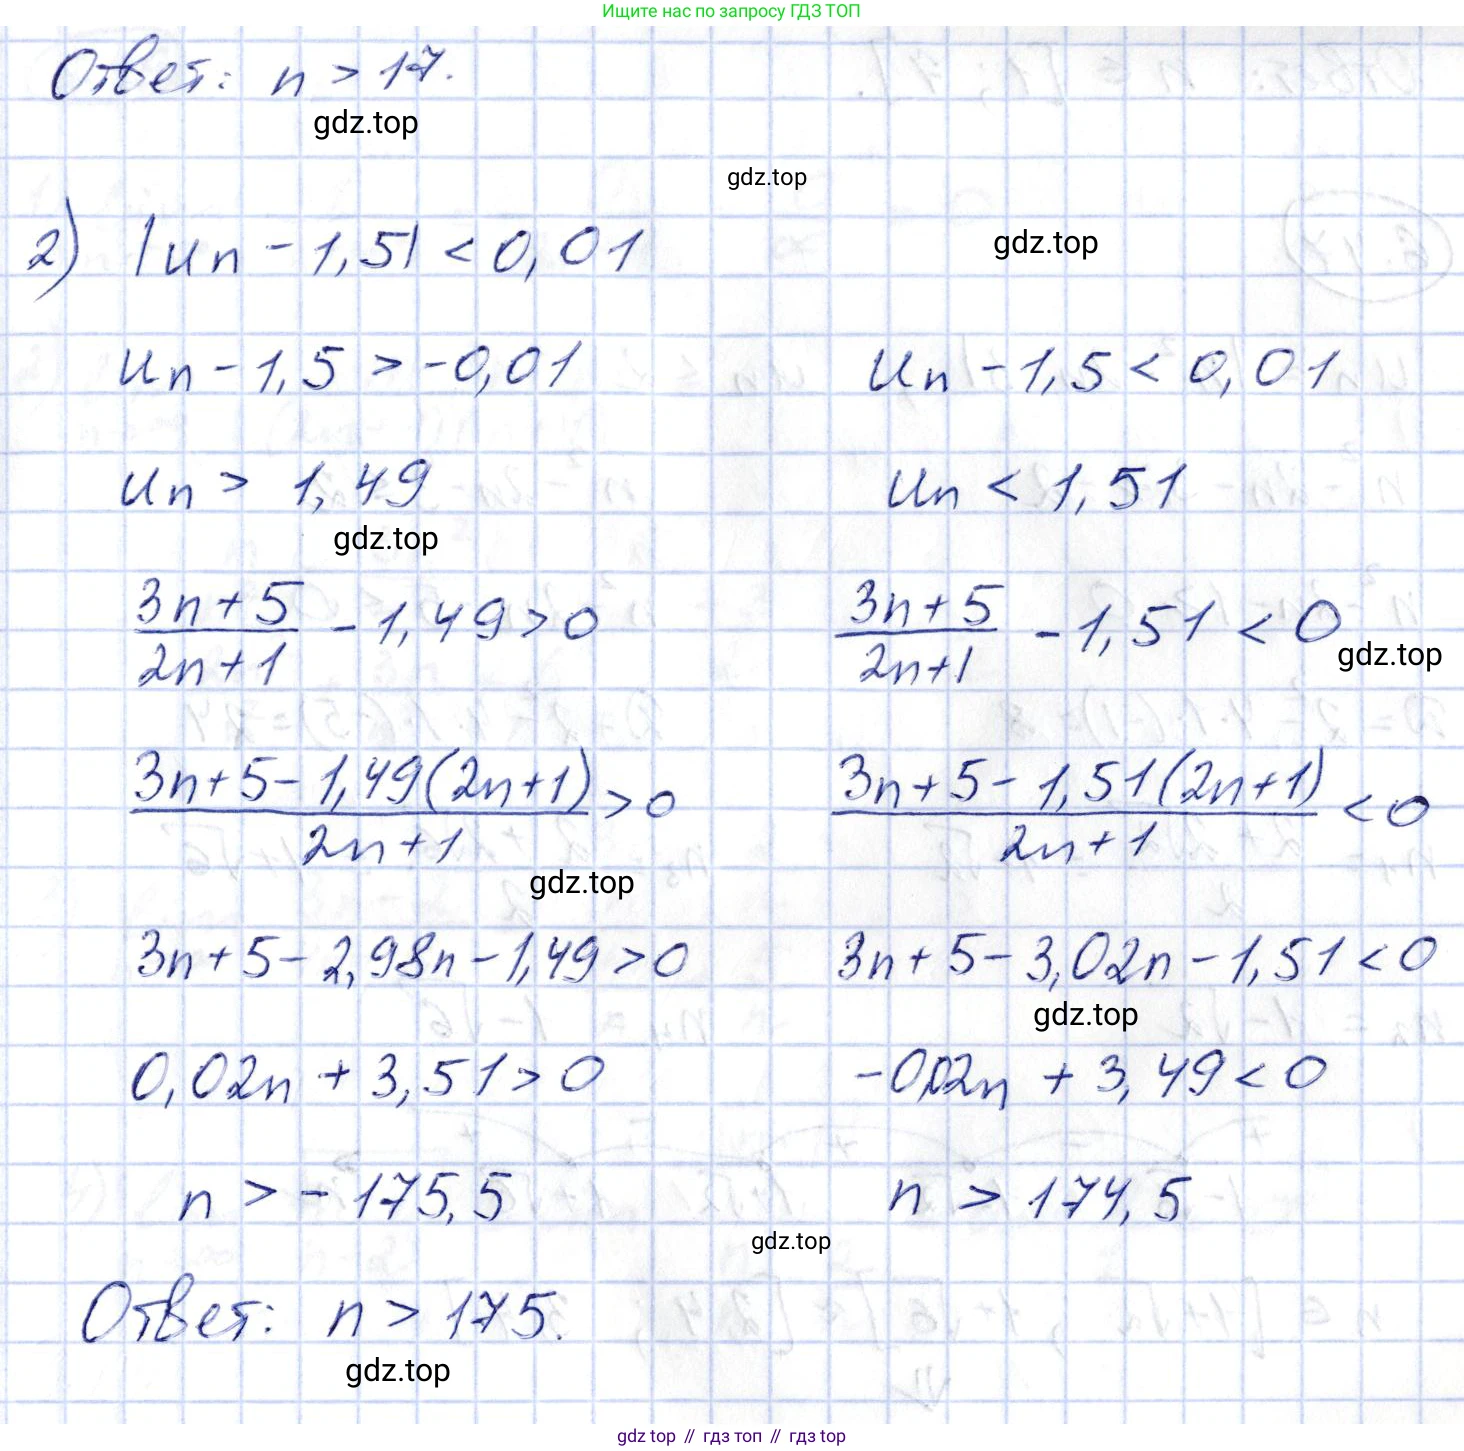 Ищите нас по запросу ГДЗ ТОП
Ответ: n > 17.
gdz.top
gdz.top
2) |un - 1,5| < 0,01
gdz.top
un - 1,5 > -0,01
un - 1,5 < 0,01
un > 1,49
un < 1,51
gdz.top
3n+5/2n+1 - 1,49 > 0
3n+5/2n+1 - 1,51 < 0
gdz.top
3n+5-1,49(2n+1)/2n+1 > 0
3n+5-1,51(2n+1)/2n+1 < 0
gdz.top
3n+5-2,98n-1,49>0
3n+5-3,02n-1,51<0
gdz.top
0,02n + 3,51 > 0
-0,02n + 3,49 < 0
n > - 175,5
n > 174,5
gdz.top
Ответ: n > 175.
gdz.top
gdz top // гдз топ // гдз top